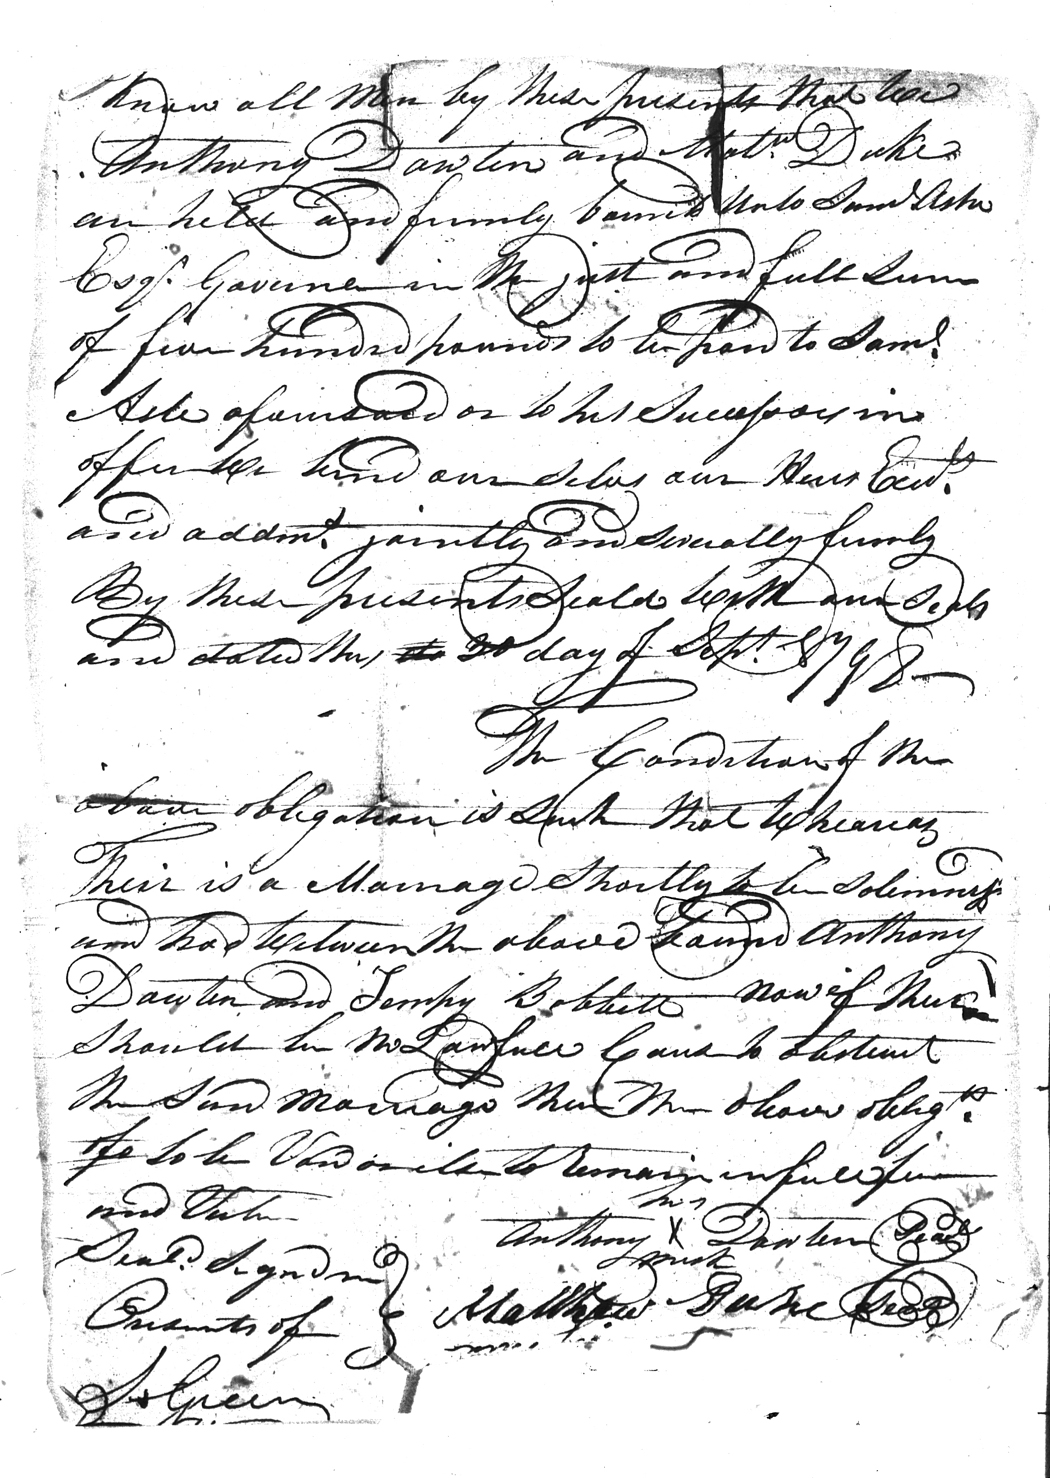 Know all Men by these presents that We
Anthony Dawten and Mat.w Duke
are held and firmly bound Unto Sam.l Ashe
Esq.r Governer in the just and full Sum
of five hundred pounds to be paid to Sam.l
Ashe aforesaid or to his Successors in
office We bind our Selves our Heirs Exec.rs
and addm.rs jointly and Severally firmly
By these presents Seald With our Seals
and dated this 20 day of Sept.r 1798
The Condition of the
above obligation is Such that Whereas
Their is a Marriage Shortly to be Solemniz
and had between the above bound Anthony
Dawten and Tempy Bobbett now if there
should be no Lawfull Caus to obstruct
the Said Marriage then the above oblig.tn
to be Void or else to remain in full force
and Virtue
his
Anthony X Dawten Seal
mark
Seal.d Signd in
Presents of
Matthew Duke Seal
Green